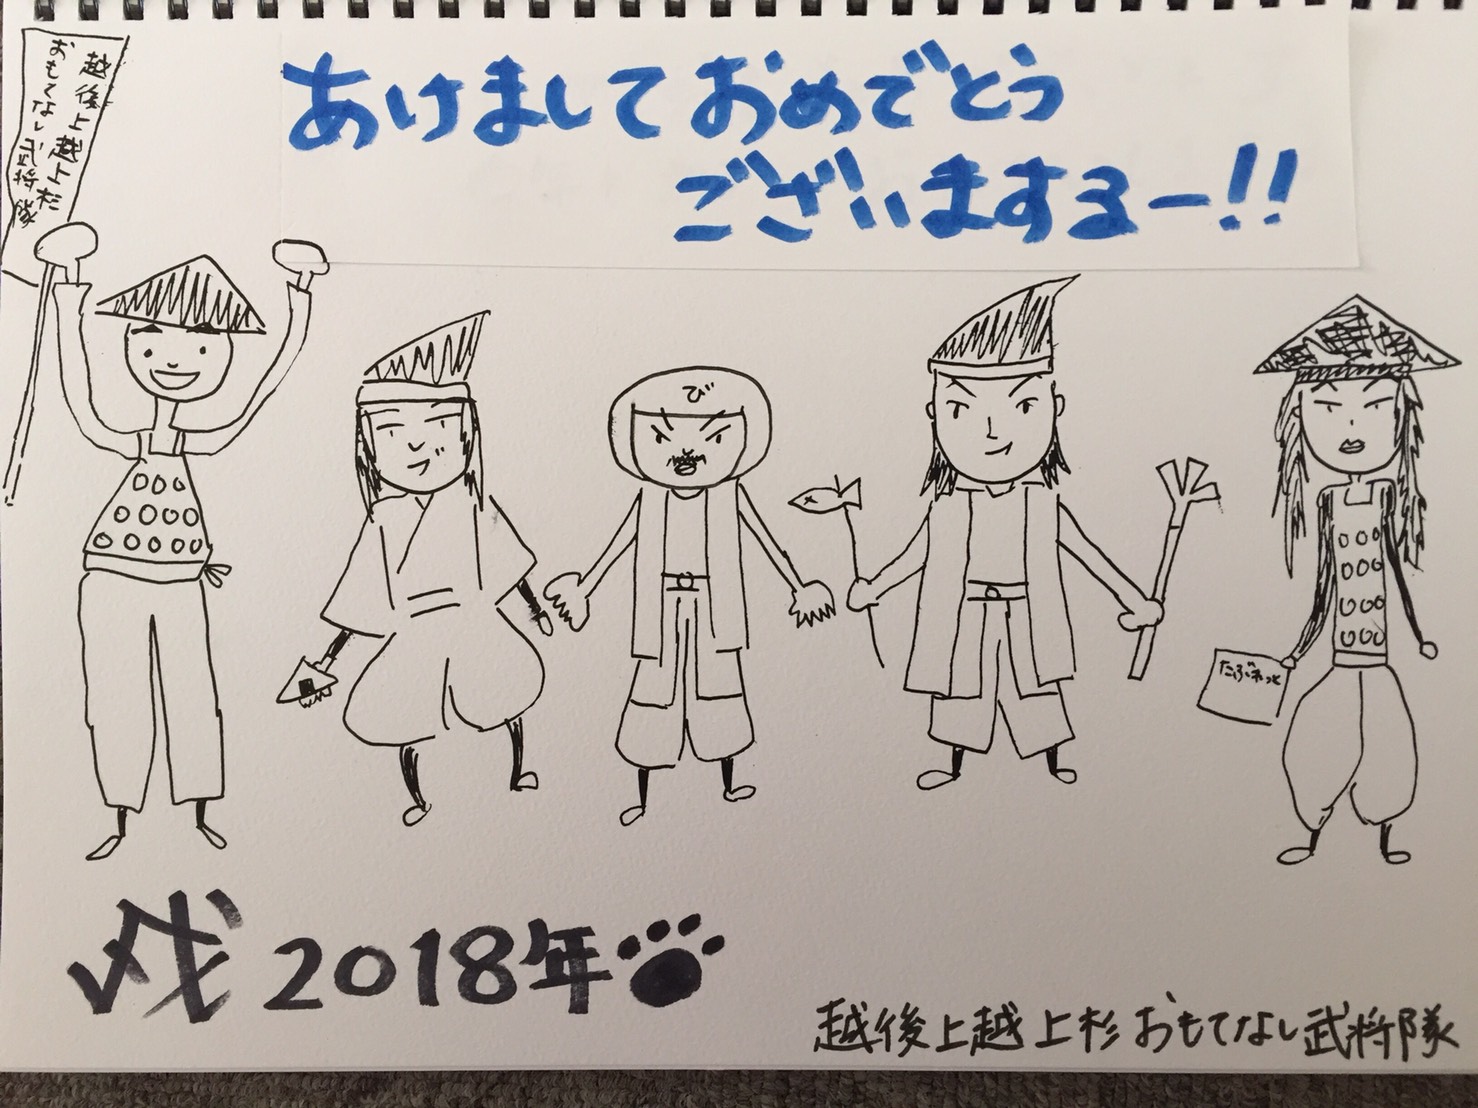 越後上越上杉
おもてなし武将隊
あけましておめでとう
ございまするー!!
び
たぶれっと
戌 2018年
越後上越 上杉 おもてなし武将隊